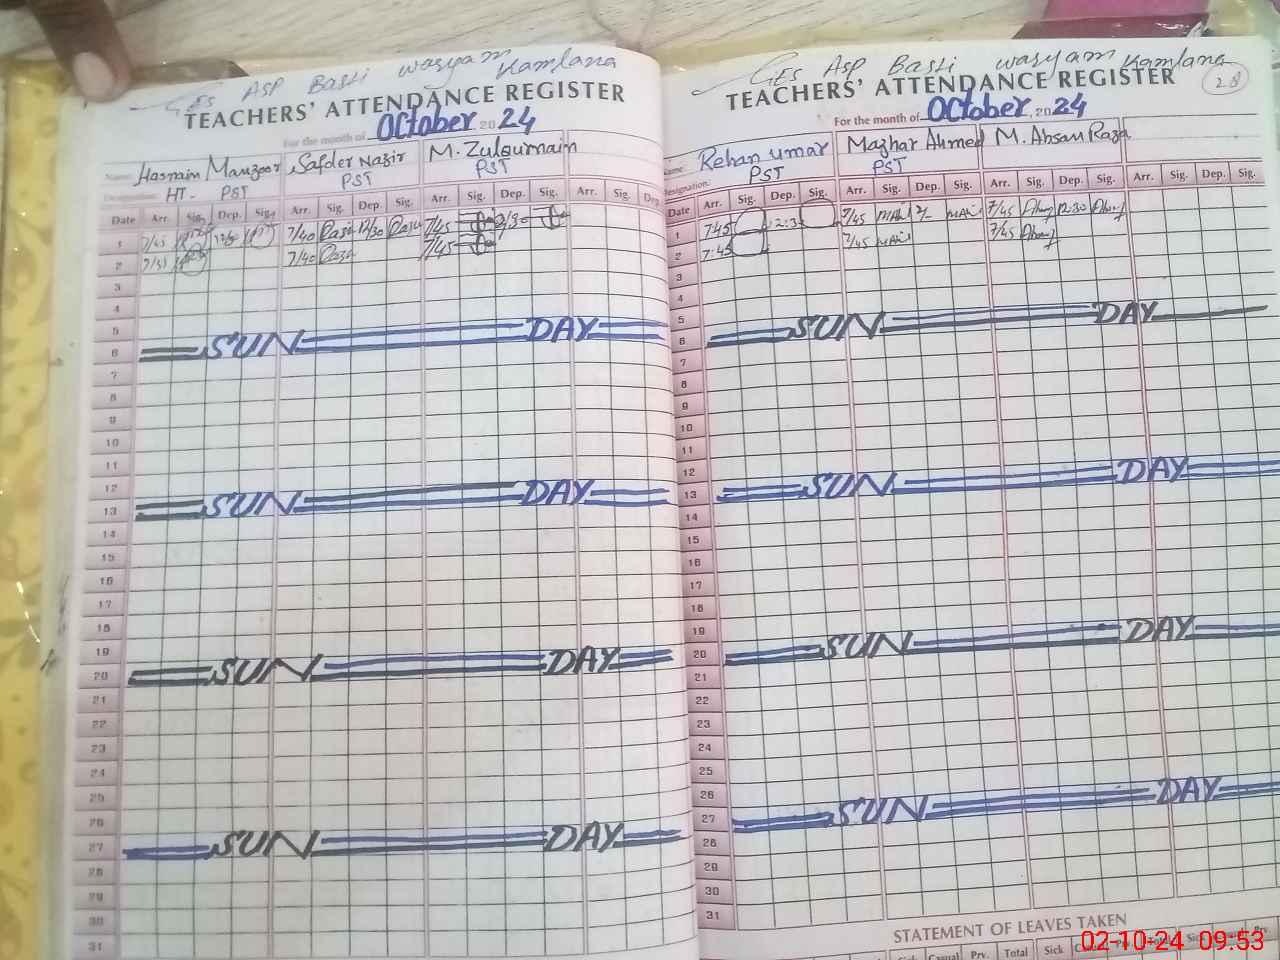 GES ASP Basti wasyam Kamlana
TEACHERS' ATTENDANCE REGISTER
For the month of October, 2024
Name: Hasnain Manzoor Safder Nazir M. Zulqurnain
Designation: HT. PST PST PST
Date Arr. Sig. Dep. Sig. Arr. Sig. Dep. Sig. Arr. Sig. Dep. Sig. Arr. Sig. Dep.
1 7/45 7/40 Raza 12/30 Raza 7/45
2 7/40 Raza 7/45
3
4
5
6 SUN DAY
7
8
9
10
11
12
13 SUN DAY
14
15
16
17
18
19
20 SUN DAY
21
22
23
24
25
26
27 SUN DAY
28
29
30
31
GES ASP Basti wasyam Kamlana
28
TEACHERS' ATTENDANCE REGISTER
For the month of October, 2024
Name: Rehan umar Mazhar Ahmed M. Ahsan Raza
Designation: PST PST
Date Arr. Sig. Dep. Sig. Arr. Sig. Dep. Sig. Arr. Sig. Dep. Sig. Arr. Sig. Dep. Sig.
1 7:45 7/45 7/45 12:30
2 7:45 7/45 7/45
3
4
5
6 SUN DAY
7
8
9
10
11
12
13 SUN DAY
14
15
16
17
18
19
20 SUN DAY
21
22
23
24
25
26
27 SUN DAY
28
29
30
31
STATEMENT OF LEAVES TAKEN
Sick Casual Prv. Total Sick Prv. Total
02-10-24 09:53